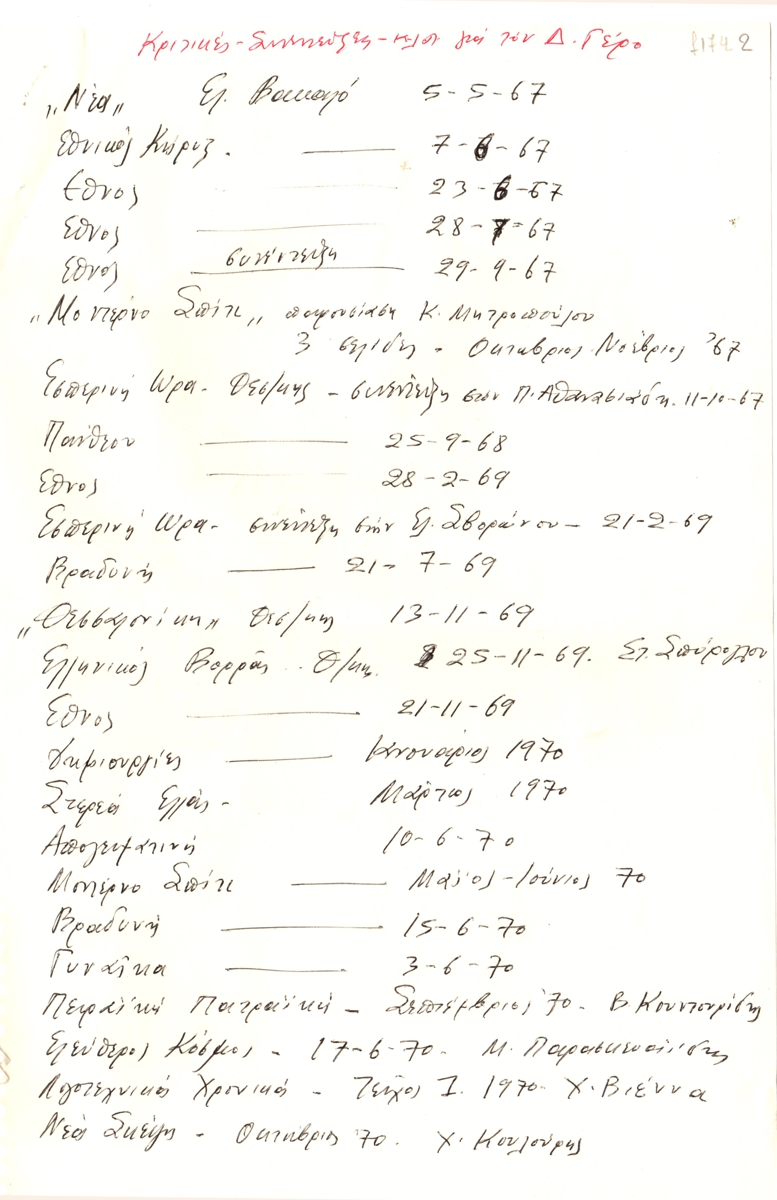 Κριτικές - Συνεντεύξεις - κλπ για τον Δ. Γέρο
2
"Νέα" Ελ. Βακαλό 5-5-67
Εθνικός Κήρυξ. 7-6-67
Εθνος 23-6-67
Εθνος 28-7-67
Εθνος συνέντευξη 29-9-67
"Μοντέρνο Σπίτι" παρουσίαση Κ. Μητροπούλου
3 σελίδες - Οκτώβριος Νοέβριος '67
Εσπερινή Ωρα - Θεσ/κης - συνέντευξη στον Π. Αθανασιάδη. 11-10-67
Πάνθεον 25-9-68
Εθνος 28-2-69
Εσπερινή Ωρα - συνέντευξη στην Ελ. Σβορώνου - 21-2-69
Βραδυνή 21-7-69
"Θεσσαλονίκη" Θεσ/κης 13-11-69
Ελληνικός Βορράς - Θ/κης. 25-11-69.
Εθνος 21-11-69
Δημιουργίες Ιανουάριος 1970
Στερεά Ελλάς - Μάρτιος 1970
Απογευματινή 10-6-70
Μοντέρνο Σπίτι Μάϊος-Ιούνιος 70
Βραδυνή 15-6-70
Γυναίκα 3-6-70
Πειραϊκή Πατραϊκή - Σεπτέμβριος '70 - Β Κουντουρίδης
Ελεύθερος Κόσμος - 17-6-70 - Μ. Παρασκευαΐδης
Λογοτεχνικά Χρονικά - Τεύχος I. 1970 - Χ. Βιέννα
Νέα Σκέψη - Οκτώβριος 70. Χ. Κουλούρης